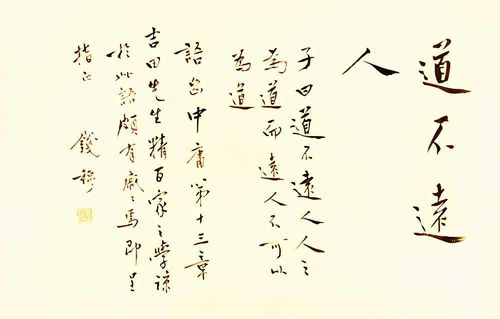 道不遠
人
子曰道不遠人人之
為道而遠人不可以
為道
語出中庸第十三章
吉田先生精百家之學諒
於此語頗有戚〻焉即呈
指正
錢穆